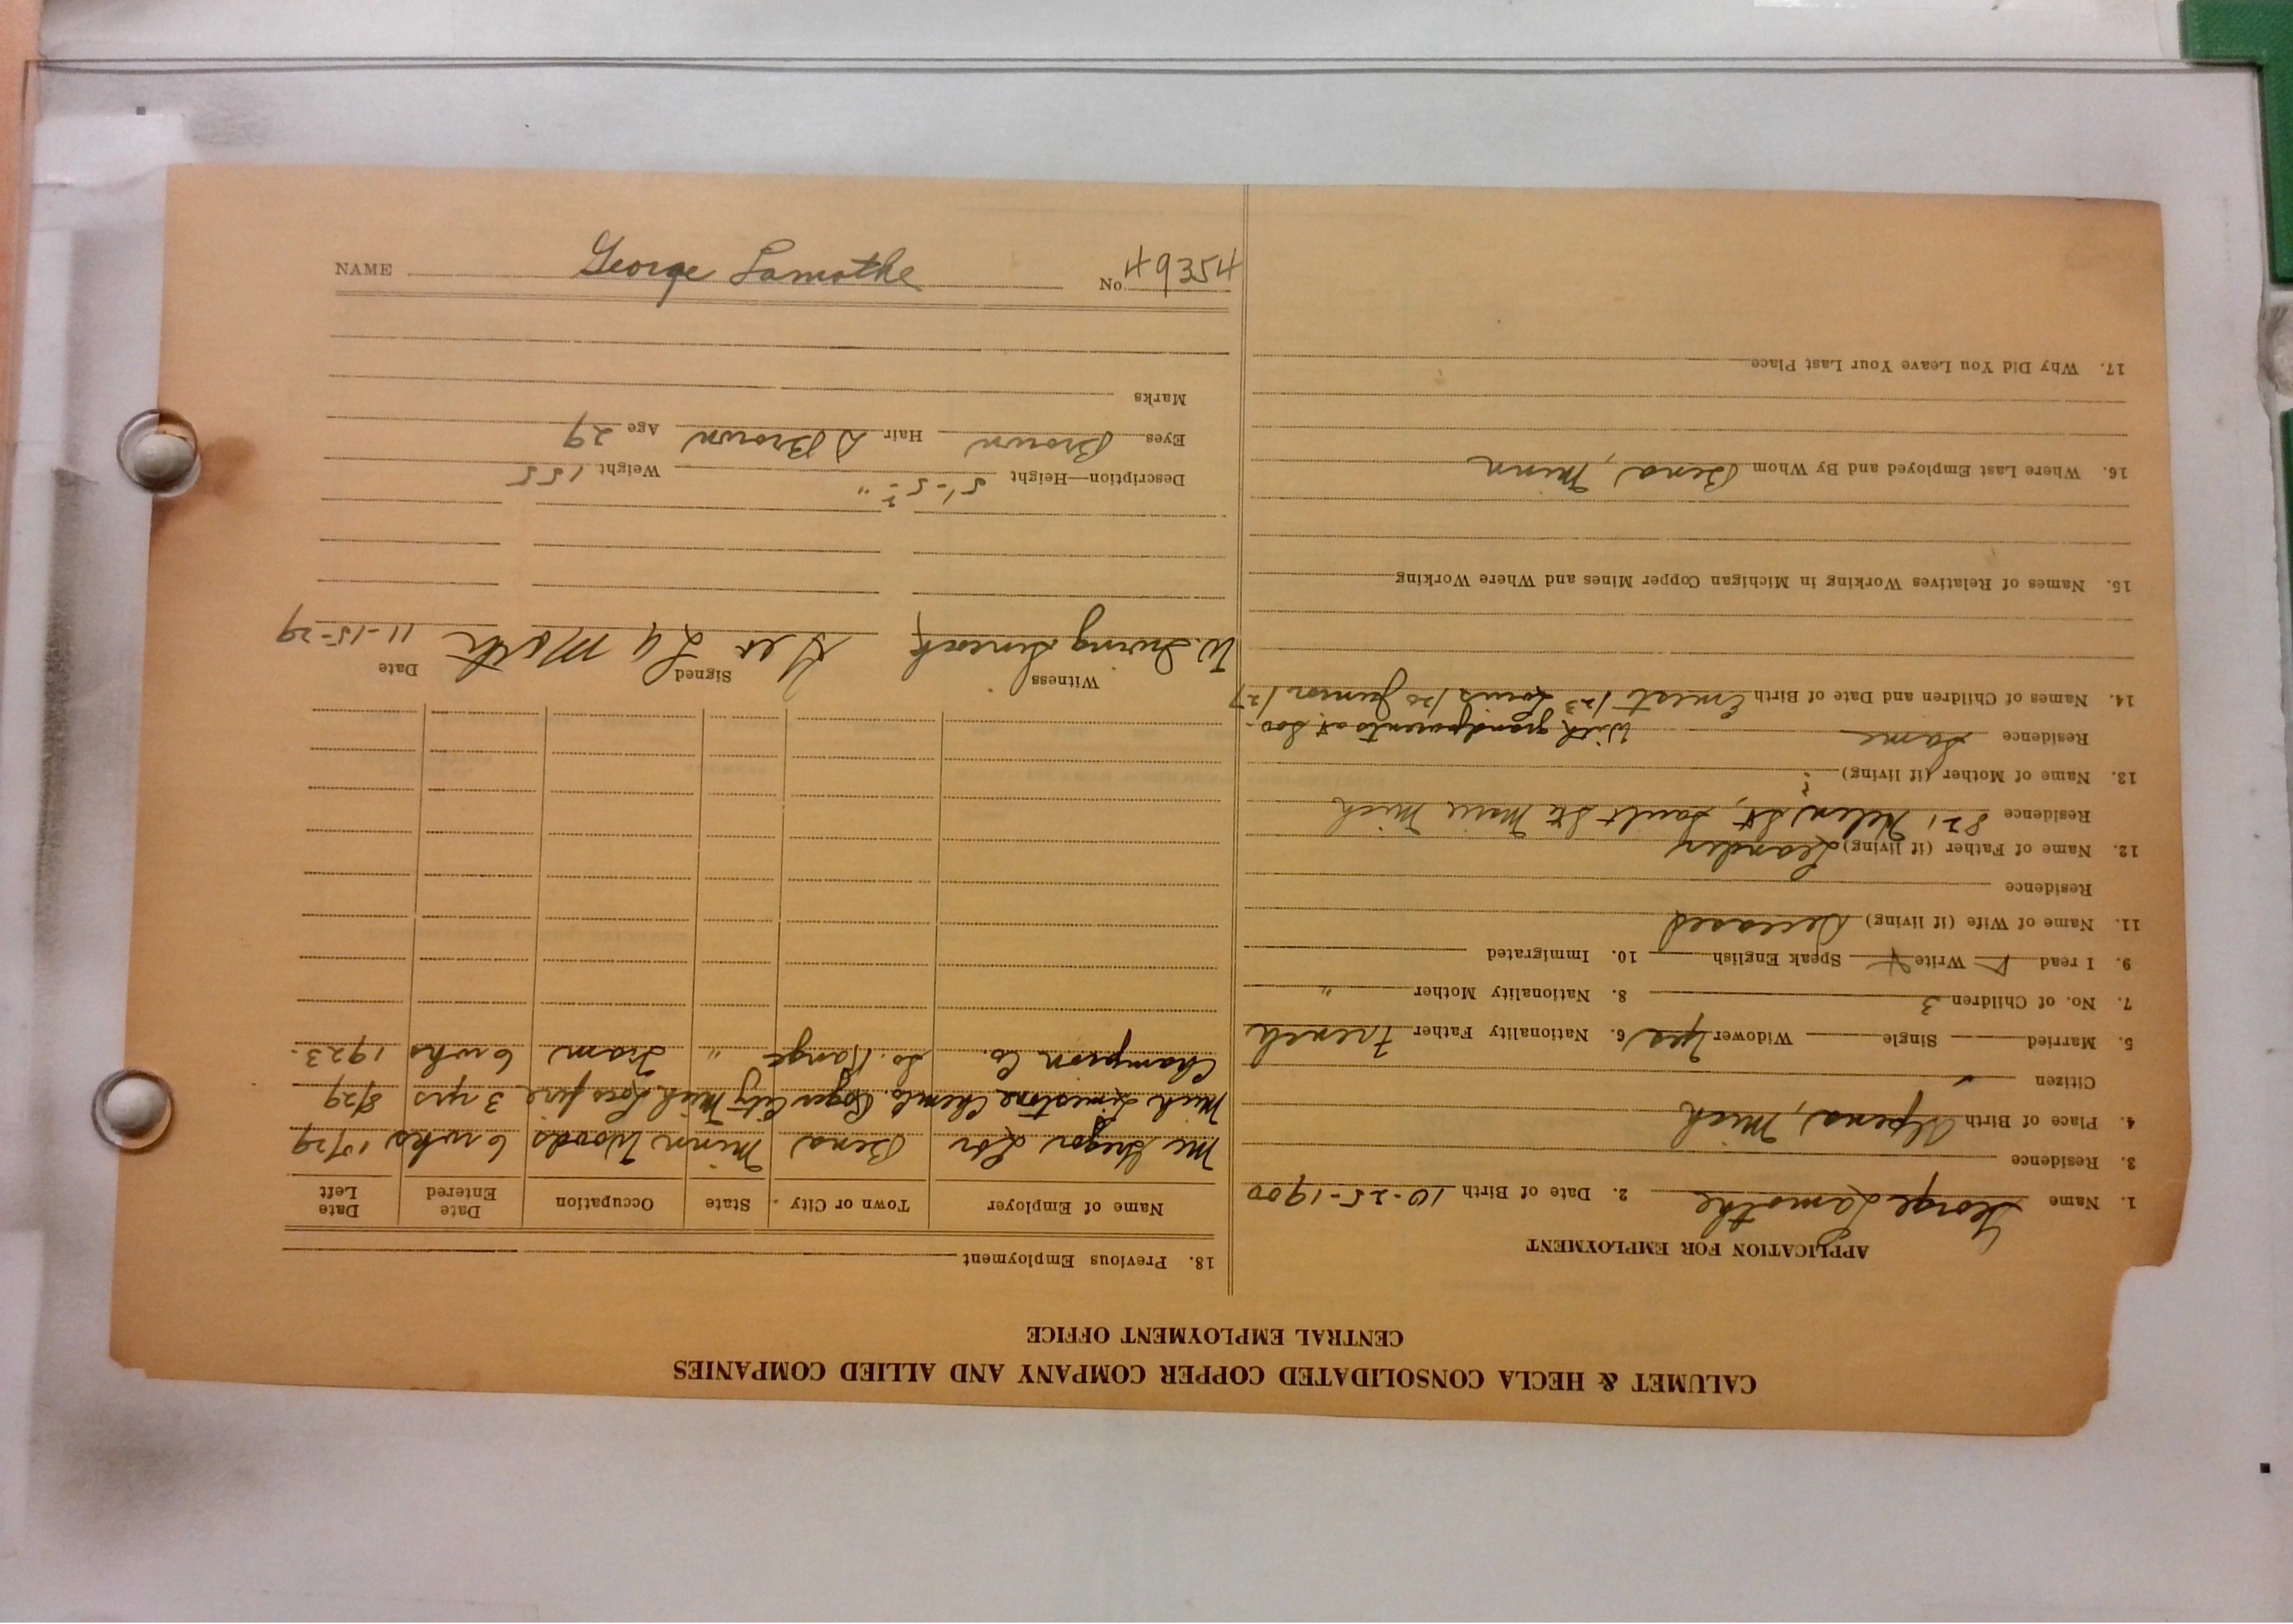 CALUMET & HECLA CONSOLIDATED COPPER COMPANY AND ALLIED COMPANIES
CENTRAL EMPLOYMENT OFFICE
APPLICATION FOR EMPLOYMENT
1. Name George Lamothe 2. Date of Birth 10-25-1900
3. Residence
4. Place of Birth Alpena, Mich
Citizen ✓
5. Married Single Widower Yes 6. Nationality Father French
7. No. of Children 3 8. Nationality Mother "
9. I read Write Speak English 10. Immigrated
11. Name of Wife (if living) Deceased
Residence
12. Name of Father (if living) Leander
Residence 821 Helen St, Sault Ste Marie Mich
13. Name of Mother (if living) ?
Residence Same With grandparents at Soo.
14. Names of Children and Date of Birth Ernest 1/23 Louis 1/25 Junior 1/27
15. Names of Relatives Working in Michigan Copper Mines and Where Working
16. Where Last Employed and By Whom Bena, Minn
17. Why Did You Leave Your Last Place
18. Previous Employment
Name of Employer Town or City State Occupation Date Entered Date Left
McGregor Lbr Bena Minn Woods 6 wks 10/29
Mich Limestone Chem Co. Roger City Mich Loco fire 3 yrs 8/29
Champion Co. So. Range " Tram 6 wks 1923.
Witness Signed Date
W. Irving Geo La Moth 11-15-29
Description—Height 5'-5 1/2" Weight 155
Eyes Brown Hair D Brown Age 29
Marks
NAME George Lamothe No. 49354